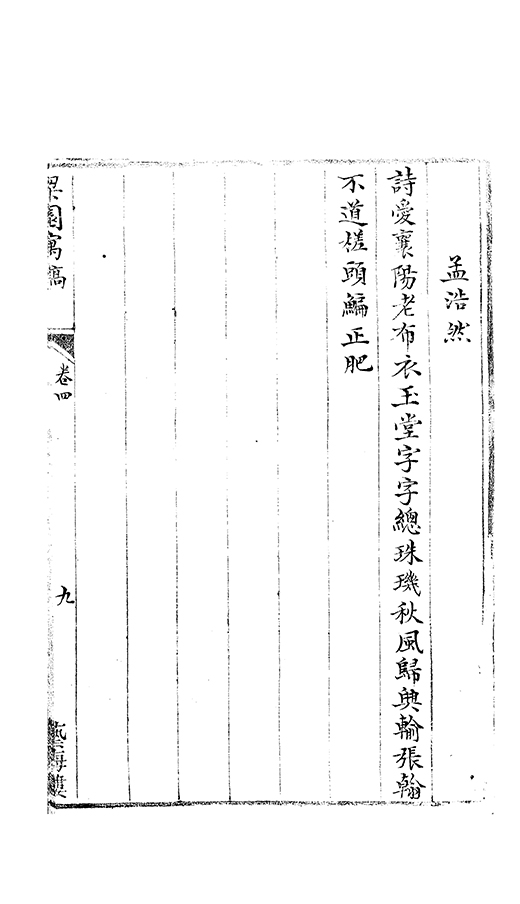 孟浩然
詩愛襄陽老布衣玉堂字字總珠璣秋風歸興輸張翰
不道槎頭鯿正肥
園寓稿
卷四
九